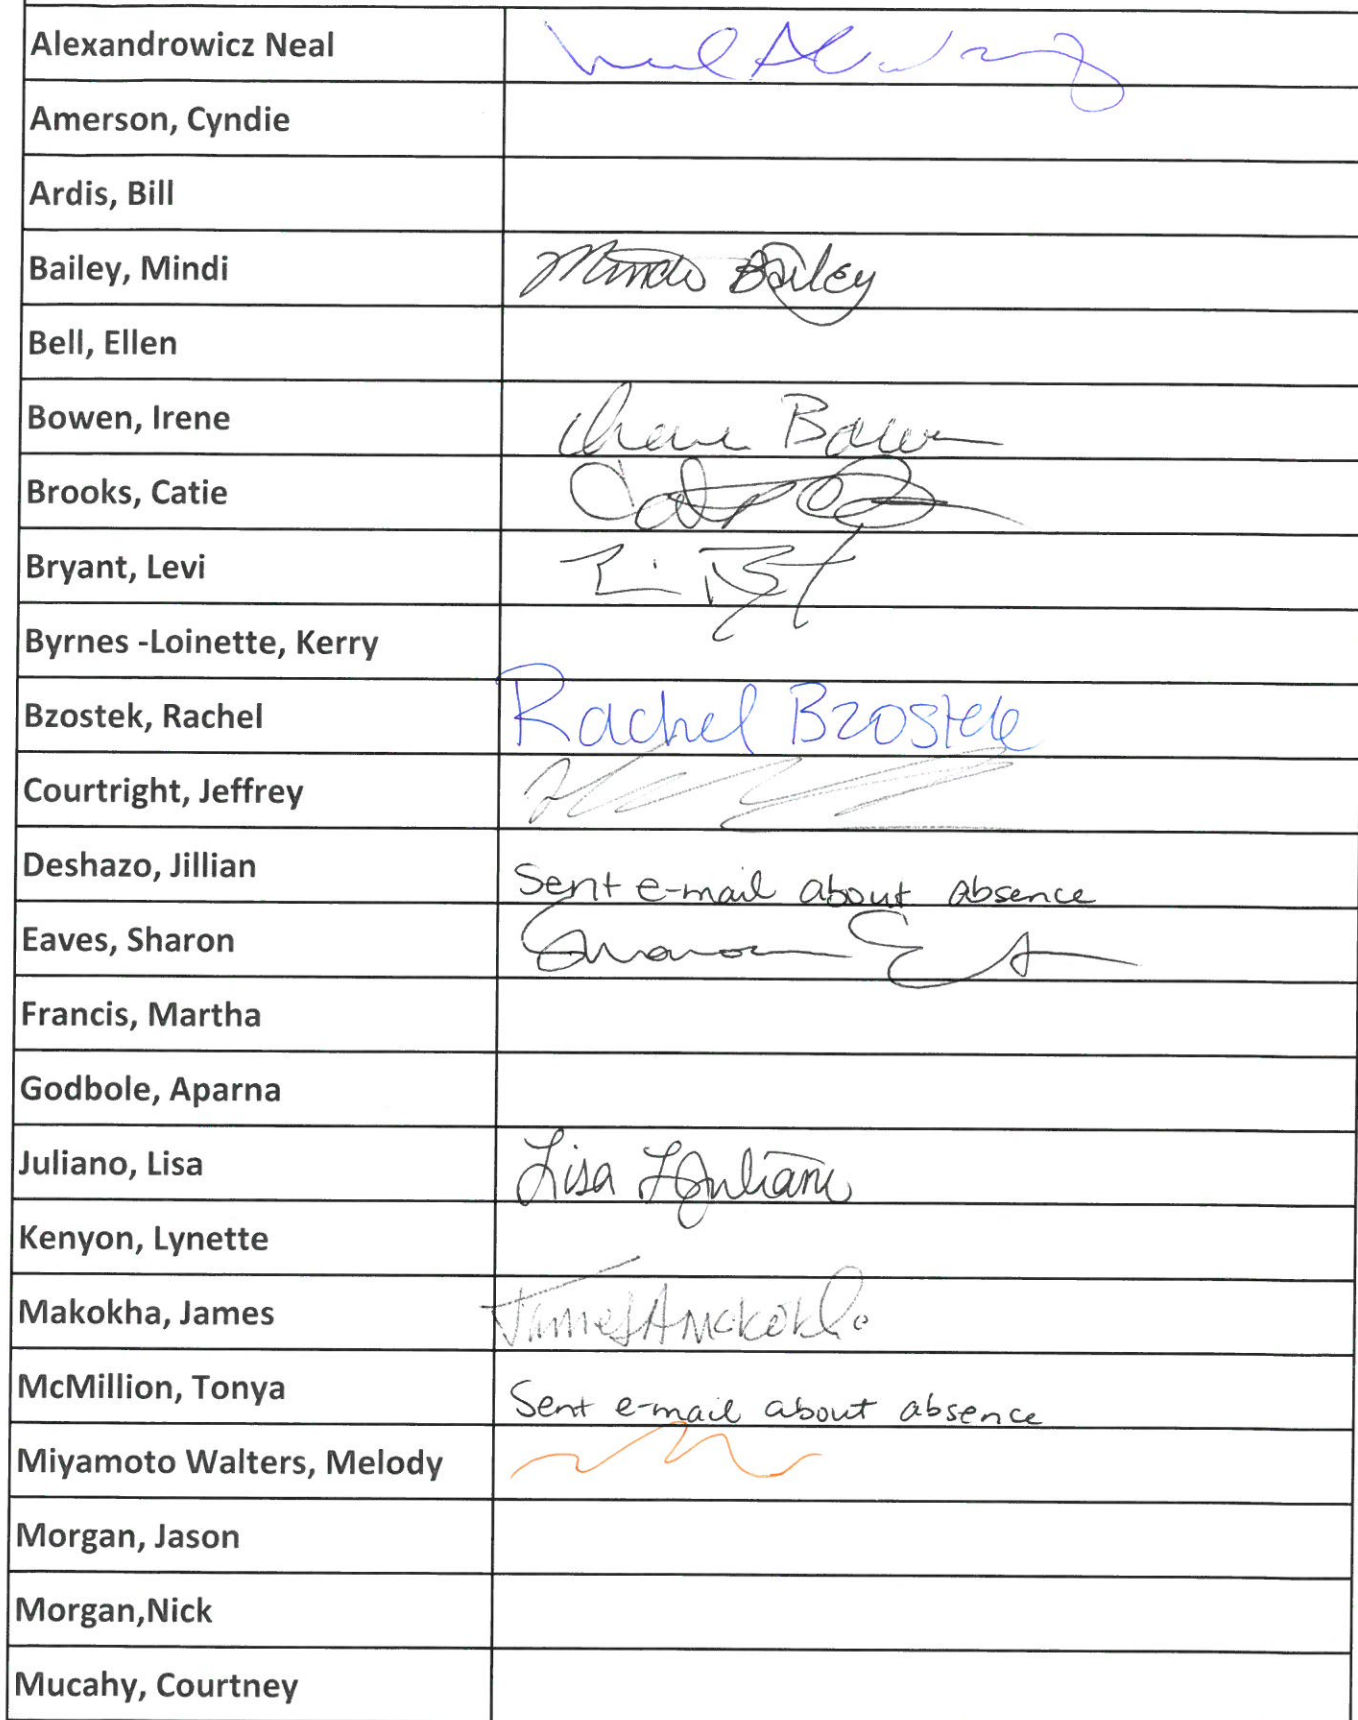 Alexandrowicz Neal
Amerson, Cyndie
Ardis, Bill
Bailey, Mindi Mindi Bailey
Bell, Ellen
Bowen, Irene Irene Bowen
Brooks, Catie
Bryant, Levi
Byrnes -Loinette, Kerry
Bzostek, Rachel Rachel Bzostek
Courtright, Jeffrey
Deshazo, Jillian Sent e-mail about absence
Eaves, Sharon Sharon
Francis, Martha
Godbole, Aparna
Juliano, Lisa Lisa Juliano
Kenyon, Lynette
Makokha, James James A Makokha
McMillion, Tonya Sent e-mail about absence
Miyamoto Walters, Melody
Morgan, Jason
Morgan,Nick
Mucahy, Courtney